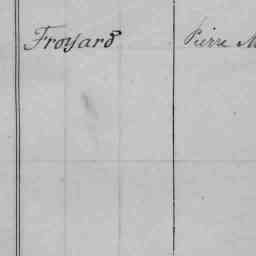 Froyard Pierre M